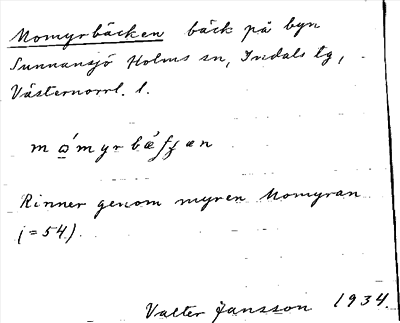 Momyrbäcken bäck på byn
Sunnansjö Holms sn, Indals tg,
Västernorrl. l.
Rinner genom myren Momyran
(=54).
Valter Jansson 1934.